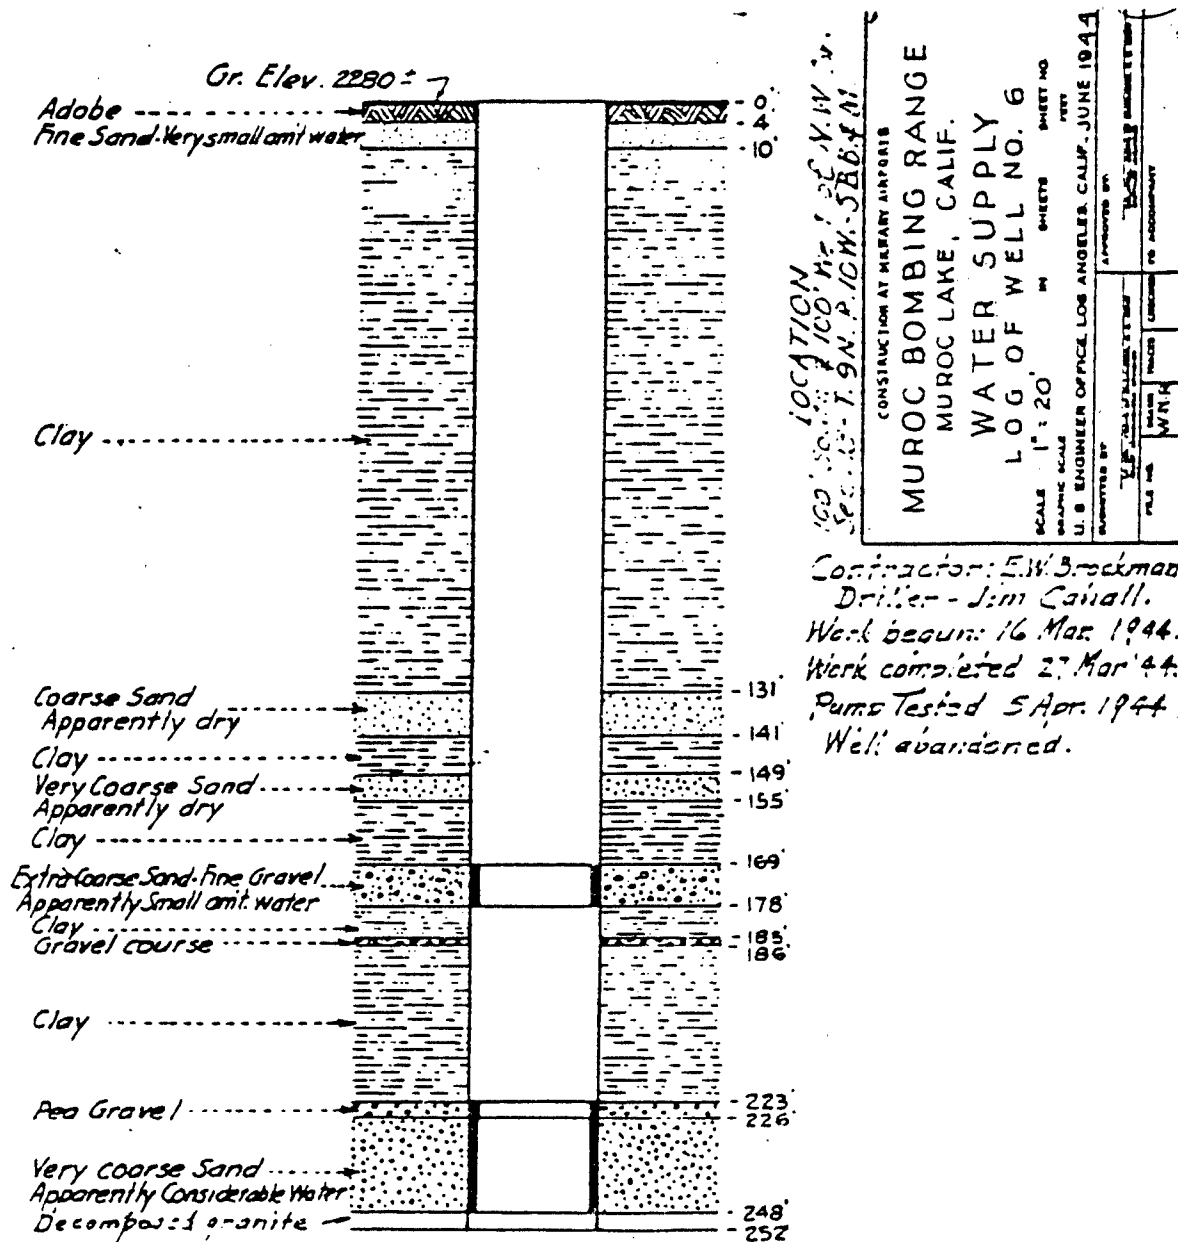 Gr. Elev. 2280 ±
Adobe
Fine Sand-Very small amt water
Clay
Coarse Sand
Apparently dry
Clay
Very Coarse Sand
Apparently dry
Clay
Extra Coarse Sand-Fine Gravel
Apparently Small amt. water
Clay
Gravel course
Clay
Pea Gravel
Very coarse Sand
Apparently Considerable Water
Decomposed granite
0'
4'
10'
131'
141'
149'
155'
169'
178'
185'
186'
223'
226'
248'
252'
LOCATION
T. 9 N. R. 10 W. - S.B.B. & M
CONSTRUCTION AT MILITARY AIRPORTS
MUROC BOMBING RANGE
MUROC LAKE, CALIF.
WATER SUPPLY
LOG OF WELL NO. 6
SCALE 1" = 20' IN SHEETS SHEET NO.
GRAPHIC SCALE FEET
U. S ENGINEER OFFICE, LOS ANGELES, CALIF. JUNE 1944
SUBMITTED BY APPROVED BY
FILE NO. DRAWN TRACED CHECKED TO ACCOMPANY
Contractor: E.W. Brockman
Driller - Jim
Work begun: 16 Mar. 1944.
Work completed 27 Mar '44.
Pump Tested 5 Apr. 1944
Well abandoned.